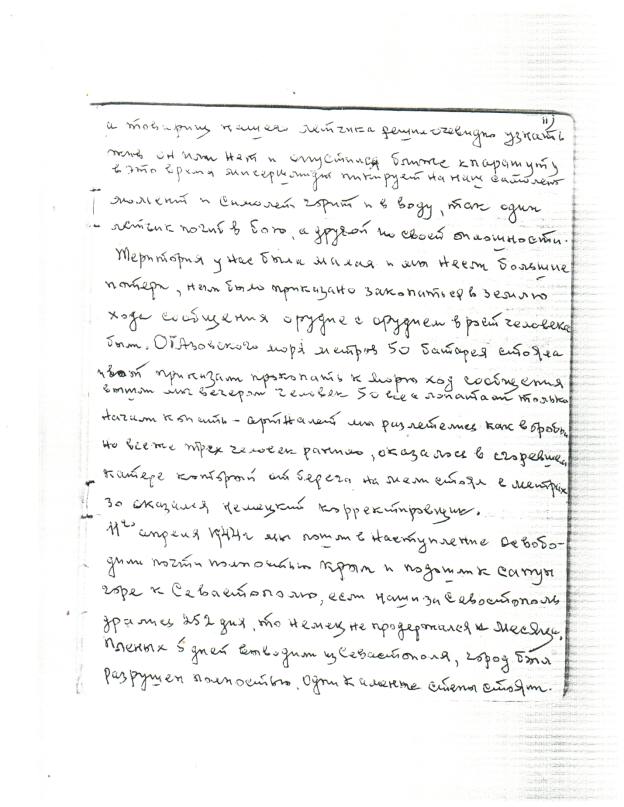 11)
а товарищ нашего летчика решил очевидно узнать
жив он или нет и опустился ближе к парашуту
в это время мисершмидт пикирует на наш самолет
момент и самолет горит и в воду, так один
летчик погиб в бою, а другой по своей оплошности.
Територия у нас была малая и мы несли большие
потери, нам было приказано закопаться в землю
хода сообщения орудие с орудием в рост человека
был. От Азовского моря метров 50 батарея стояла
и вот приказали прокопать к морю ход сообщения
вышли мы вечером человек 50 все с лопатами только
начали копать - артналет мы разлетелись как воробьи
но все же трех человек ранило, оказалось в сгоревшем
катере который от берега на мели стоял в метрах
30 оказался немецкий корректировщик.
11го апреля 1944г мы пошли в наступление освобо-
дили почти полностью Крым и подошли к Сапун
горе к Севастополю, если наши за Севостополь
дрались 252 дня, то немец не продержался и месяца.
Пленых 5 дней выводили из Севастополя, город был
разрушен полностью. Одни каменые стены стоят.